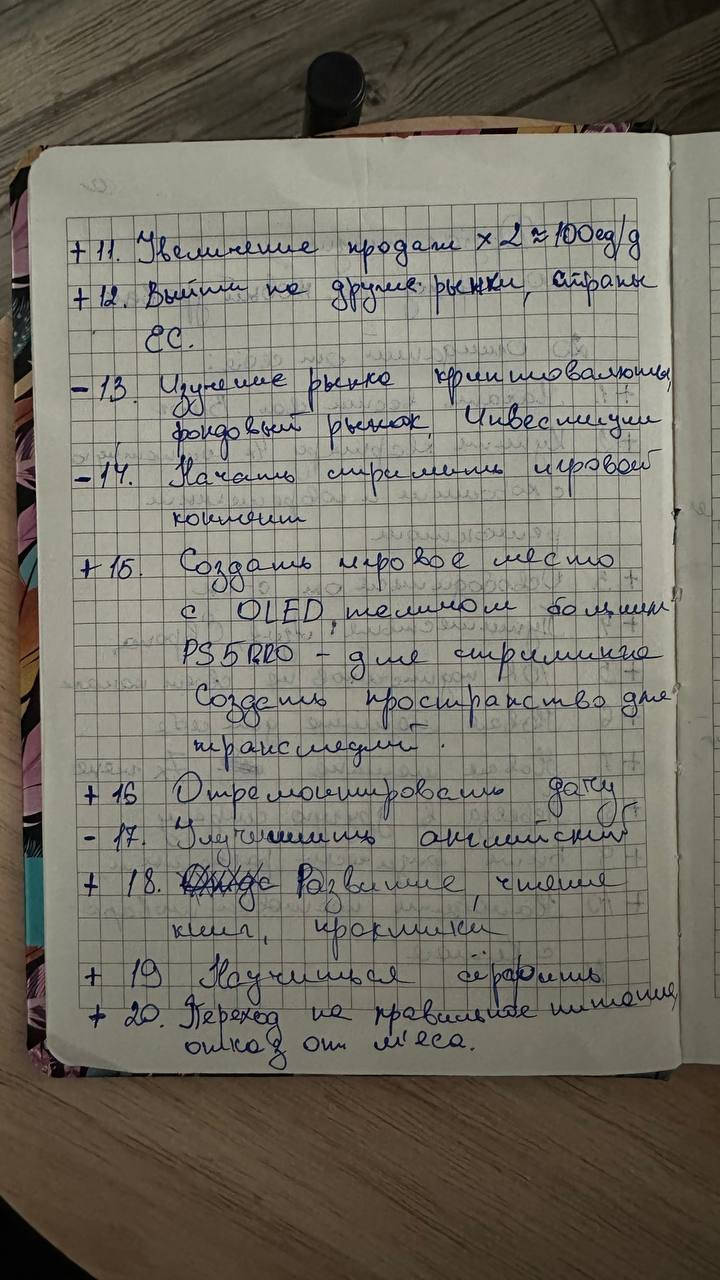 + 11. Увеличение продаж × 2 ≈ 100ед/д
+ 12. Выйти на другие рынки, страны
ЕС.
- 13. Изучение рынка криптовалюты,
фондовый рынок, Инвестиции
- 14. Начать стримить игровой
контент
+ 15. Создать игровое место
с OLED, теликом большим
PS5 PRO - для стриминга
Создать пространство для
трансляций.
+ 16 Отремонтировать дачу
- 17. Улучшить английский
+ 18. Развитие, чтение
книг, практики
+ 19 Научиться сёрфить
+ 20. Переход на правильное питание,
отказ от м'яса.